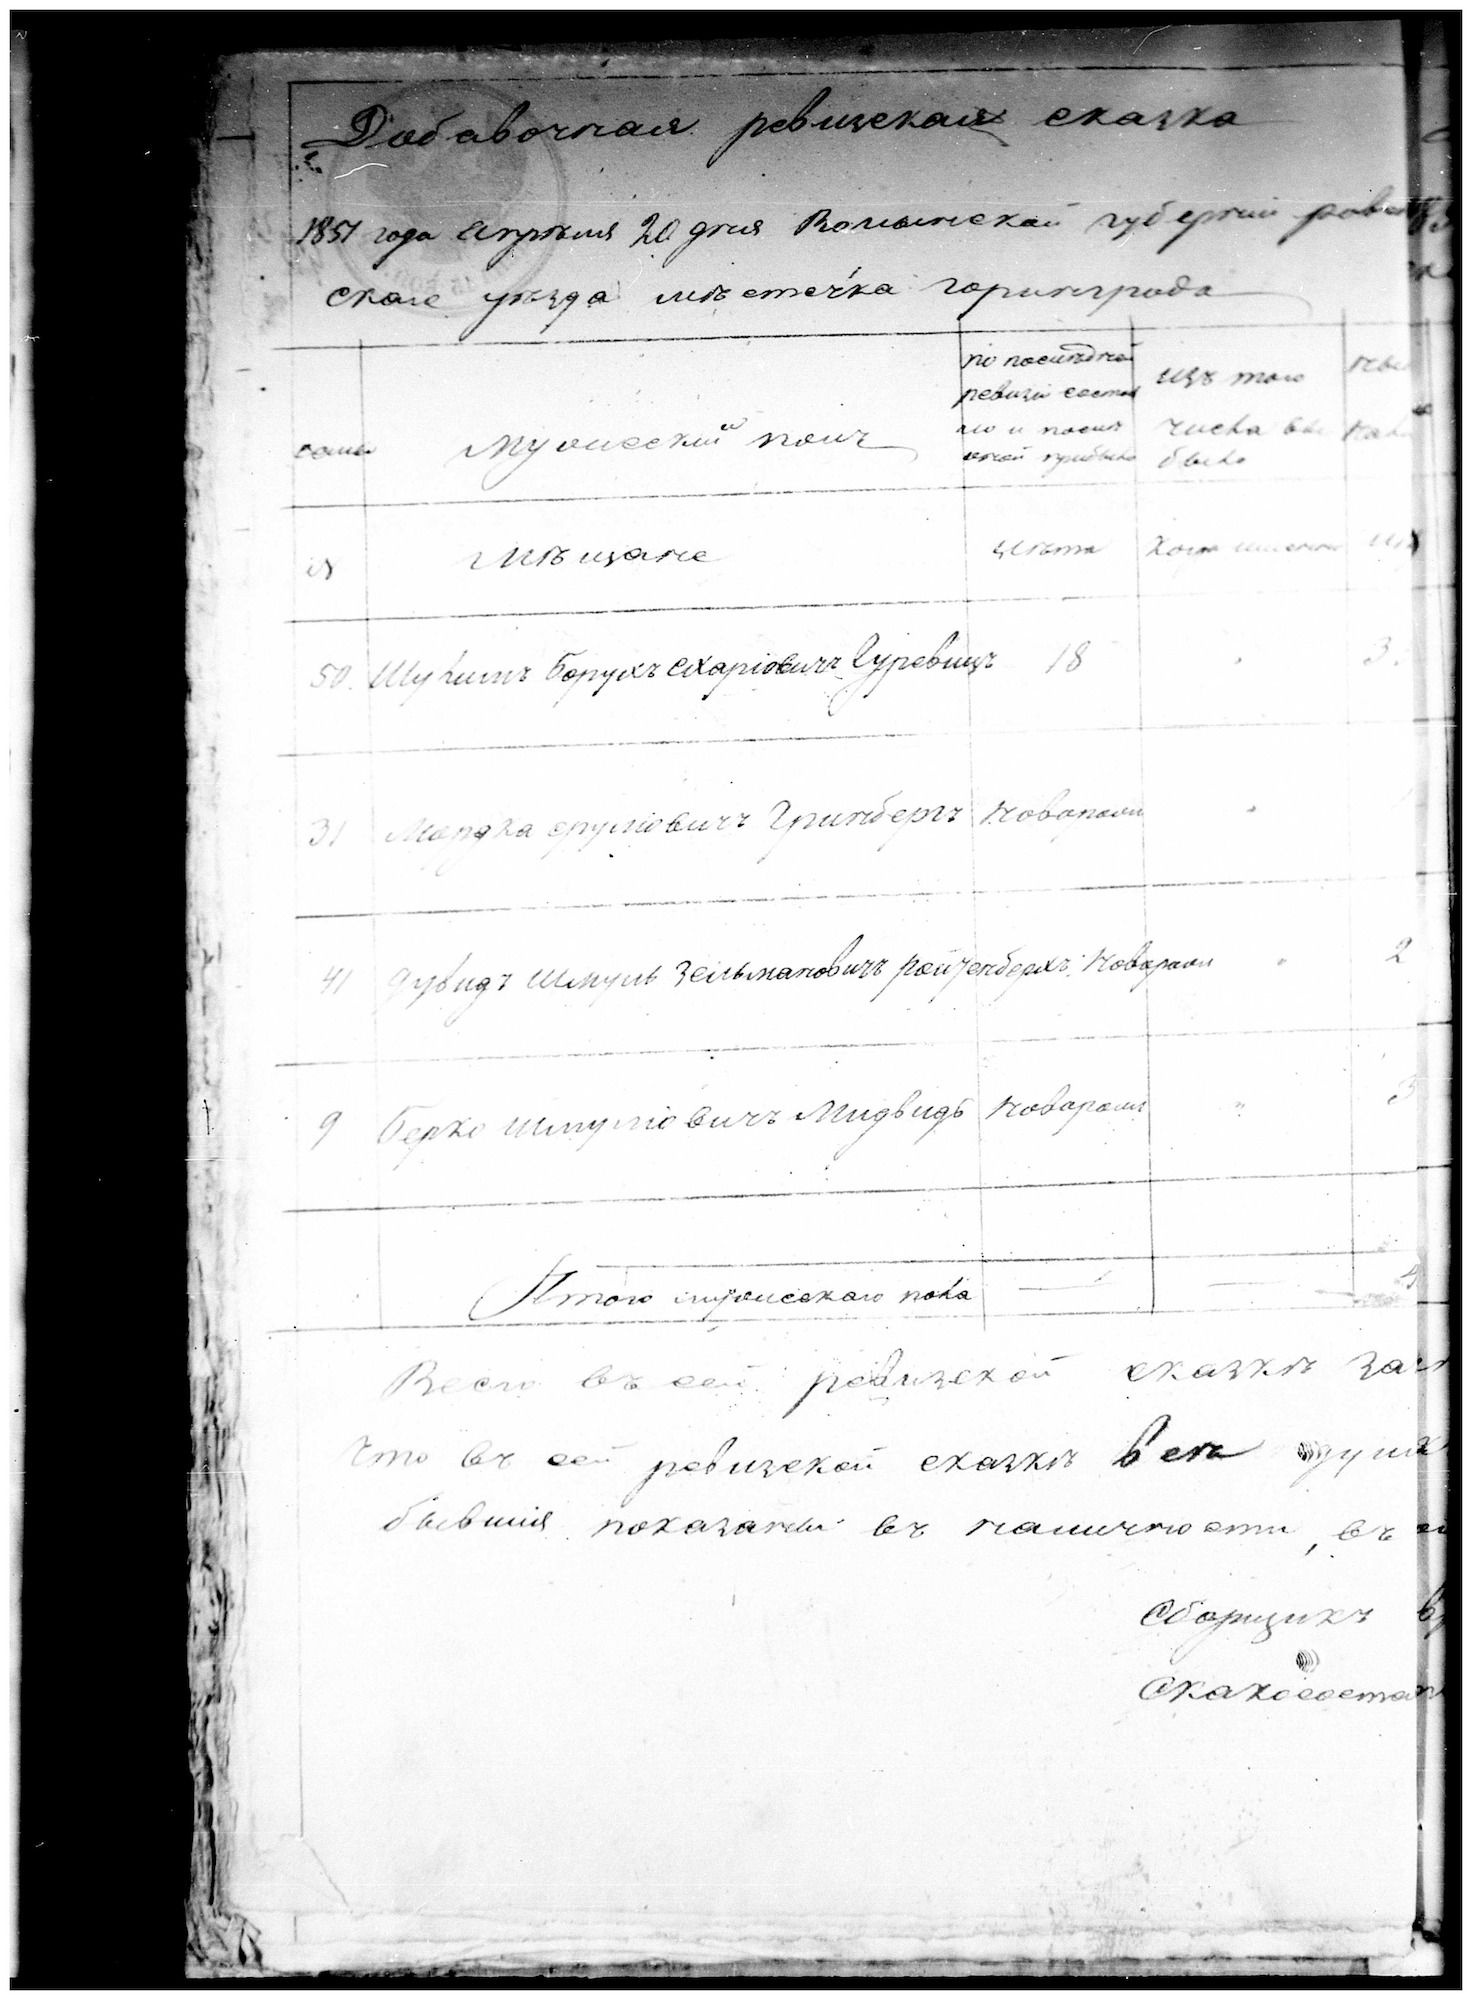 Добавочная ревизская сказка
1851 года апреля 20 дня Волынской губернии ровен
скаго уезда местечка горинграда
семьи
Мужеский полъ
по последней
ревизіи состоя
ло и после
оной прибыло
изъ того
числа вы
было
№
Мещане
лета
когда именно
50. Шулимъ Борухъ Схаріовичъ Гуревицъ 18 " 3.
31 Мордка Срулiовичъ Гринбергъ Новорожд "
41 Дувидъ Шмуль Зельмановичъ Ройзенберхъ Новорожд " 2
9 Берко Шмуліовичъ Мидвидь Новорожд " 3
Итого мужескаго пола
Всего въ сей ревизской сказкѣ
Что въ сей ревизской сказкѣ все душ
бывшія показаны въ наличности, въ
Сборщикъ
Сказкосостав